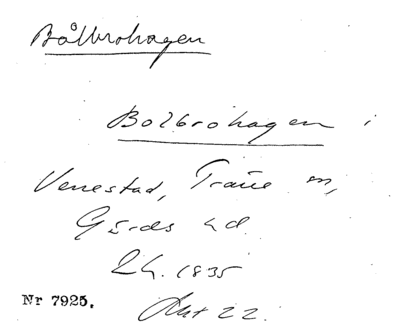 Bålbrohagen
Bolbrohagen i
Venestad, Träne sn,
Gärds hd.
Lh. 1835
Akt 22.
Nr 7925.